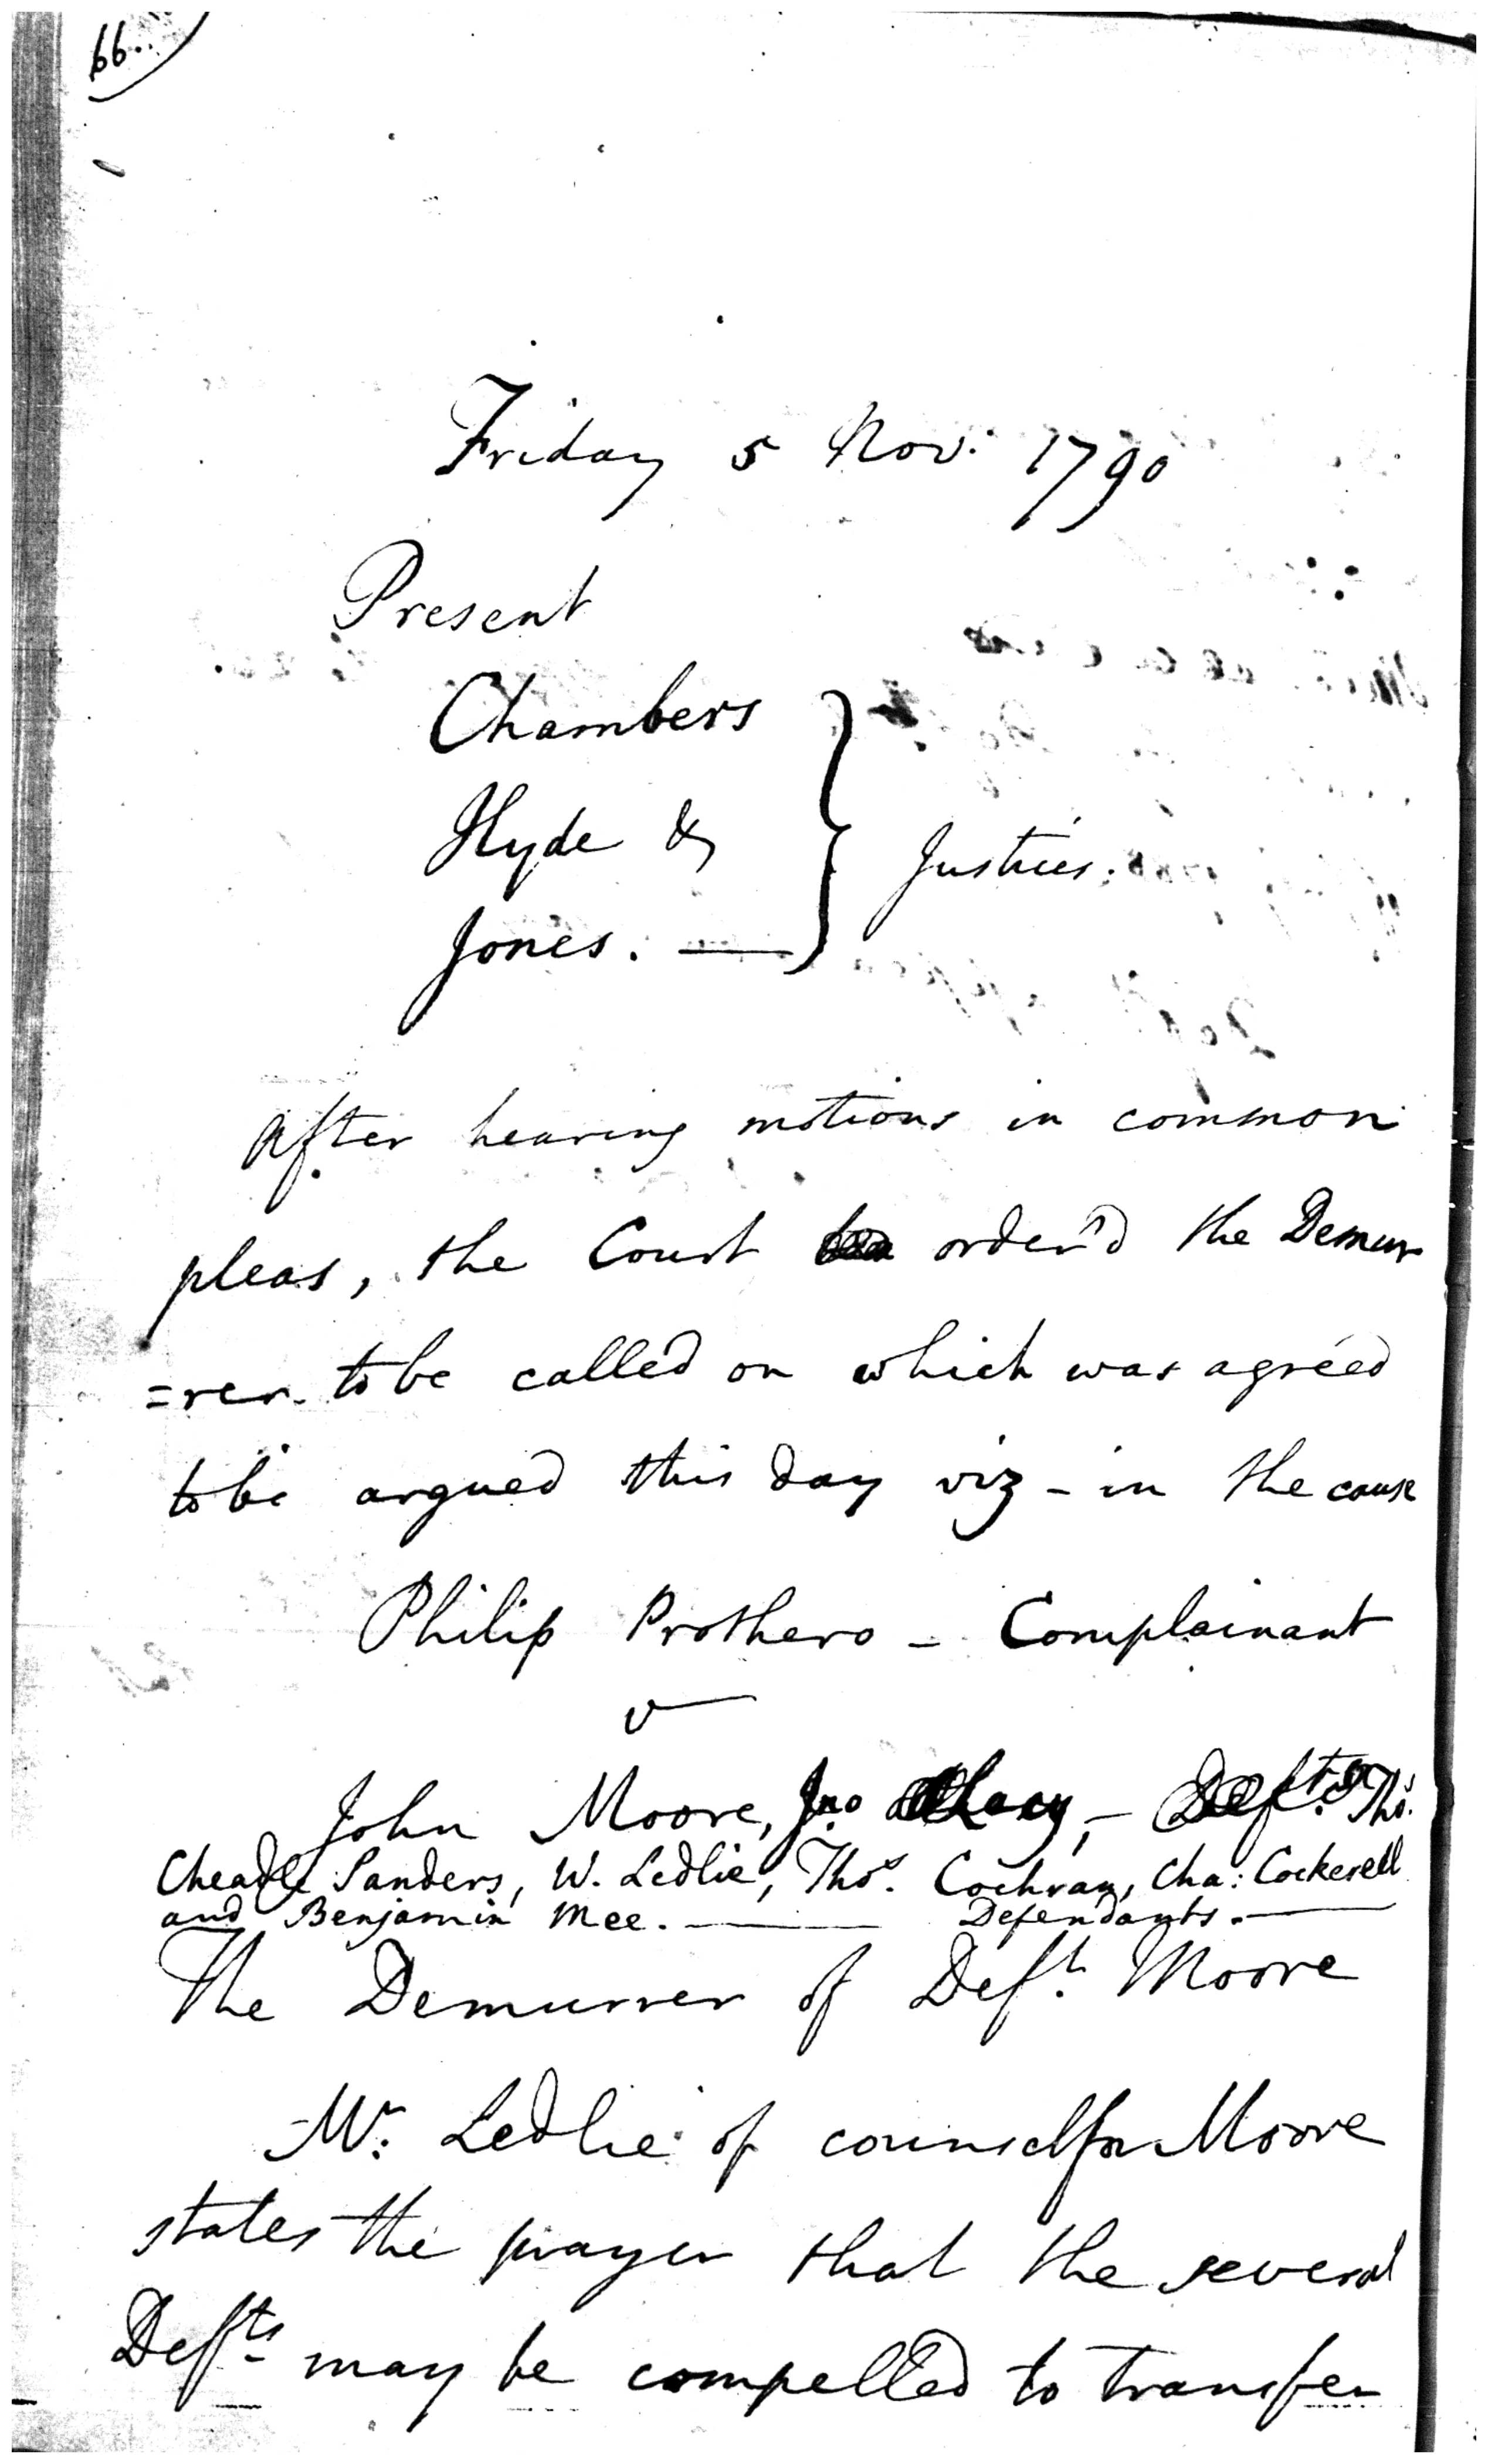 66.
Friday 5 Nov: 1790
Present
Chambers
Hyde &
Jones. —
Justices.
After hearing motions in common
pleas, the Court order'd the Demur
=rer. to be called on which was agreed
to be argued this day viz - in the cause
Philip Prothero - Complainant
v
John Moore, Jno Lacy, - Thos.
Cheadle Sanders, W. Ledlie, Thos. Cochran, Cha: Cockerell
and Benjamin Mee. — Defendants. —
The Demurrer of Deft. Moore
Mr. Ledlie of counsel for Moore
states the prayer that the several
Defts may be compelled to transfer